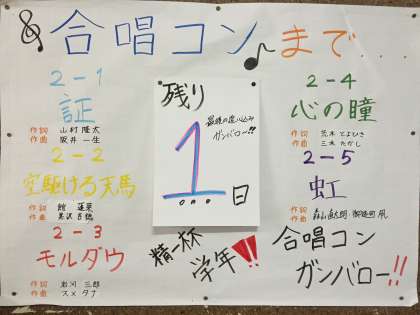 合唱コン♪まで....
2-1
証
作詞 山村隆太
作曲 阪井一生
2-2
空駆ける天馬
作詞 館 蓬莱
作曲 黒沢吉徳
2-3
モルダウ
作詞 岩河三郎
作曲 スメタナ
残り
最後の追い込み
ガンバロー!!
1
日
...
精一杯
学年!!
2-4
心の瞳
作詞 荒木とよひさ
作曲 三木たかし
2-5
虹
作詞
作曲 森山直太朗 御徒町凧
合唱コン
ガンバロー!!